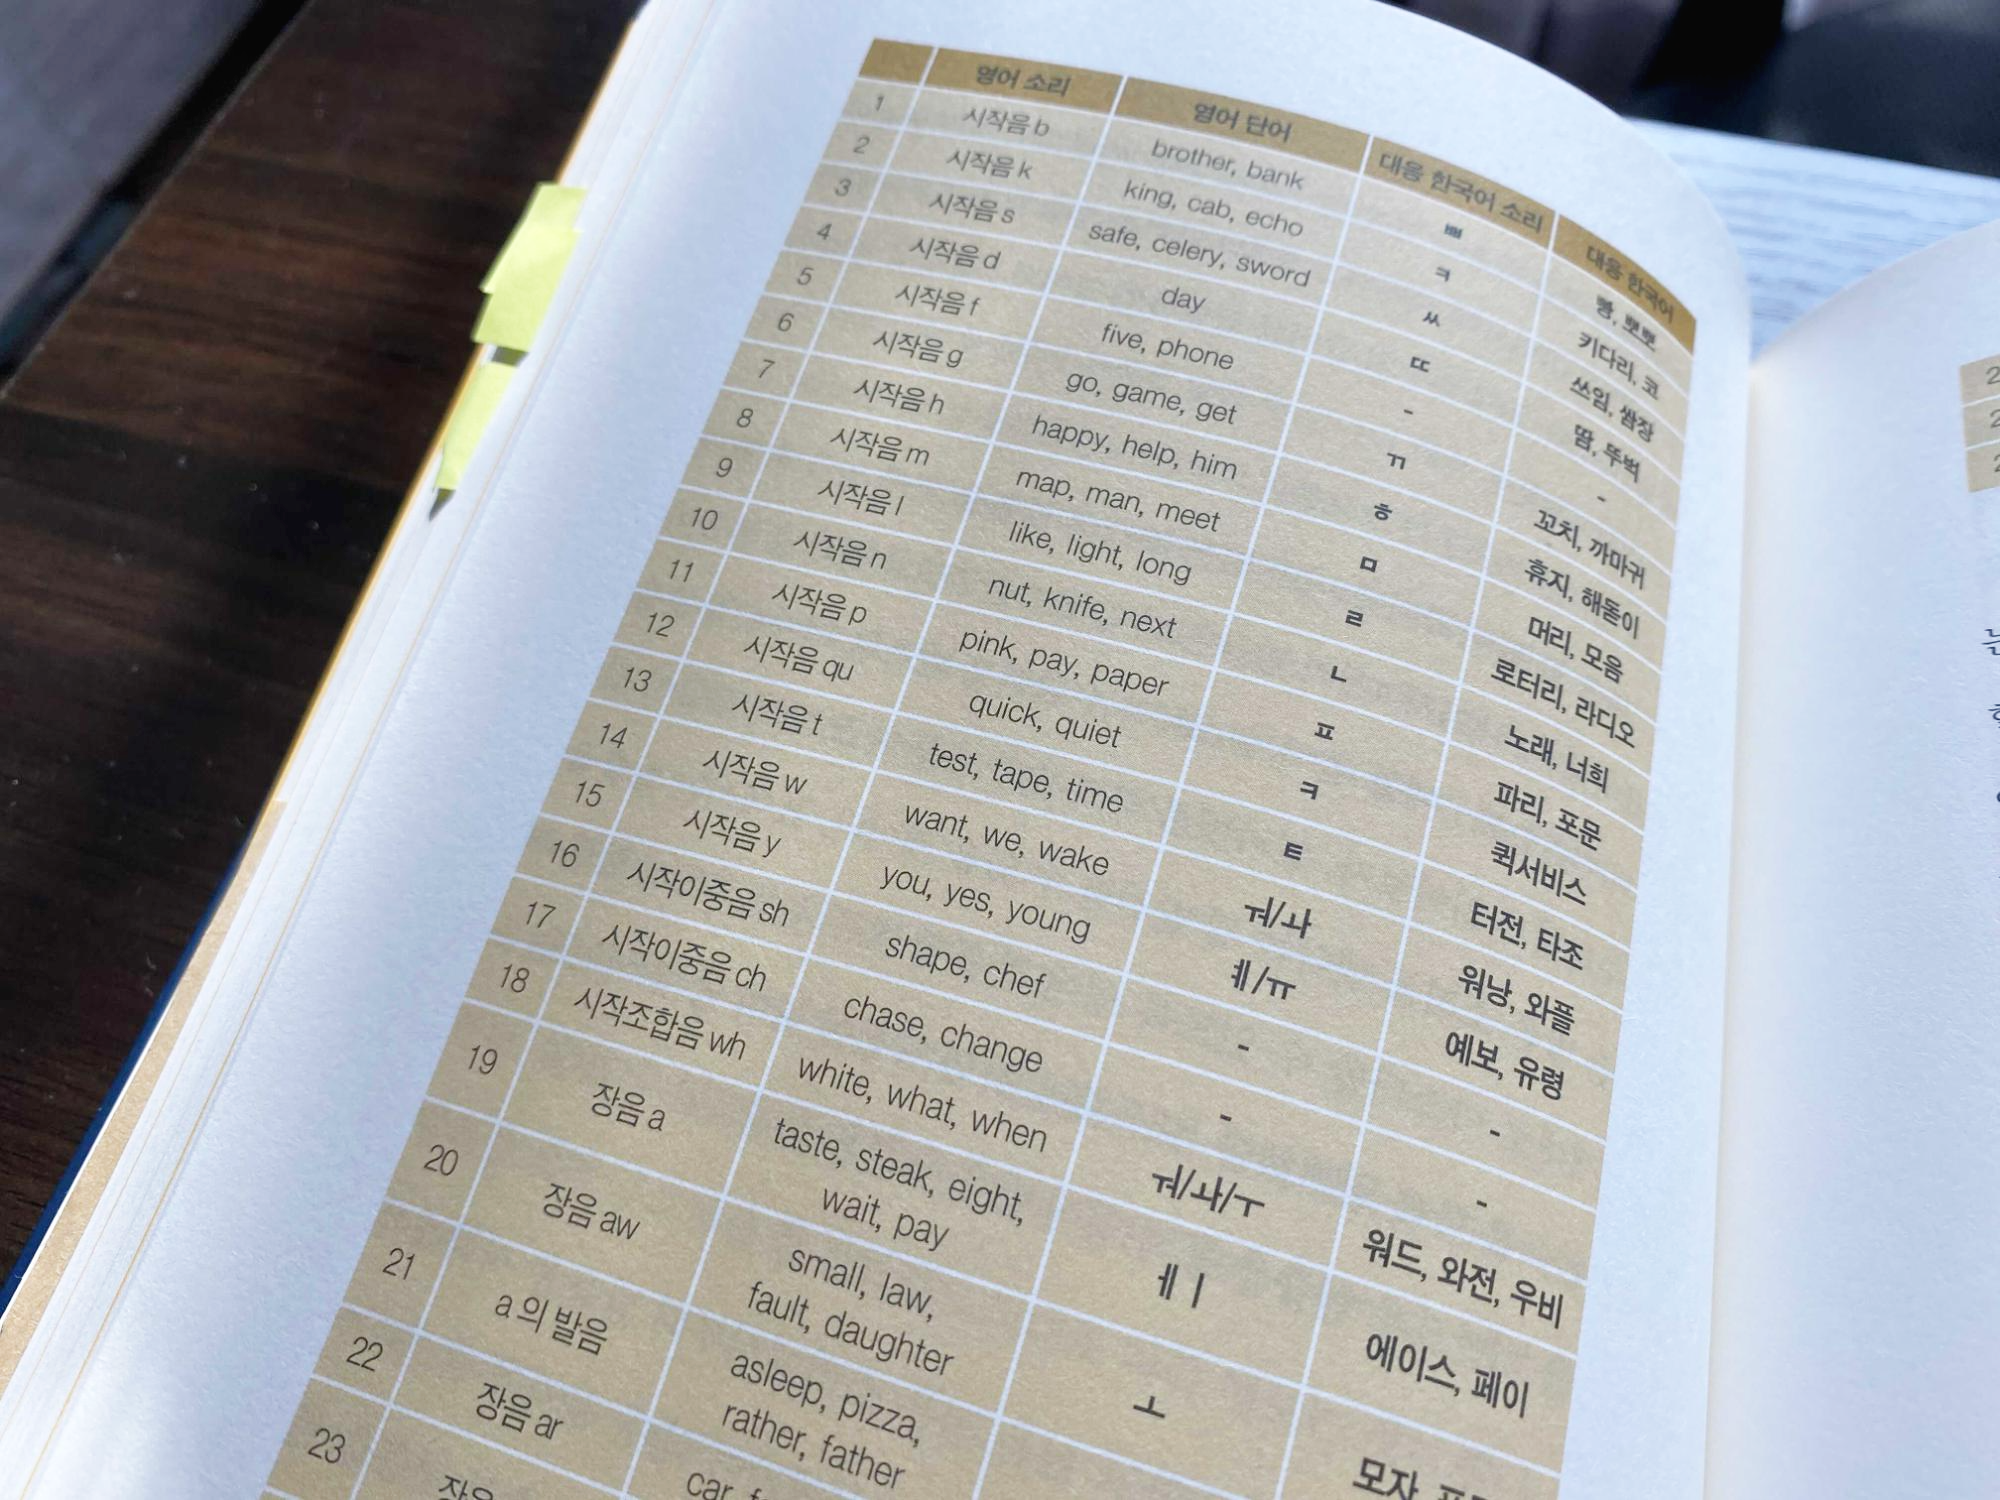 영어 소리 영어 단어 대응 한국어 소리 대응 한국어
1 시작음 b brother, bank ㅃ 빵, 뽀뽀
2 시작음 k king, cab, echo ㅋ 키다리, 코
3 시작음 s safe, celery, sword ㅆ 쓰임, 쌈장
4 시작음 d day ㄸ 땀, 뚜벅
5 시작음 f five, phone - -
6 시작음 g go, game, get ㄲ 꼬치, 까마귀
7 시작음 h happy, help, him ㅎ 휴지, 해돋이
8 시작음 m map, man, meet ㅁ 머리, 모음
9 시작음 l like, light, long ㄹ 로터리, 라디오
10 시작음 n nut, knife, next ㄴ 노래, 너희
11 시작음 p pink, pay, paper ㅍ 파리, 포문
12 시작음 qu quick, quiet ㅋ 퀵서비스
13 시작음 t test, tape, time ㅌ 터전, 타조
14 시작음 w want, we, wake ㅝ/ㅘ 워낭, 와플
15 시작음 y you, yes, young ㅖ/ㅠ 예보, 유령
16 시작이중음 sh shape, chef - -
17 시작이중음 ch chase, change - -
18 시작조합음 wh white, what, when ㅝ/ㅘ/ㅜ 워드, 와전, 우비
19 장음 a taste, steak, eight,
wait, pay ㅔㅣ 에이스, 페이
20 장음 aw small, law,
fault, daughter ㅗ 모자,
21 a 의 발음 asleep, pizza,
rather, father
22 장음 ar car,
23